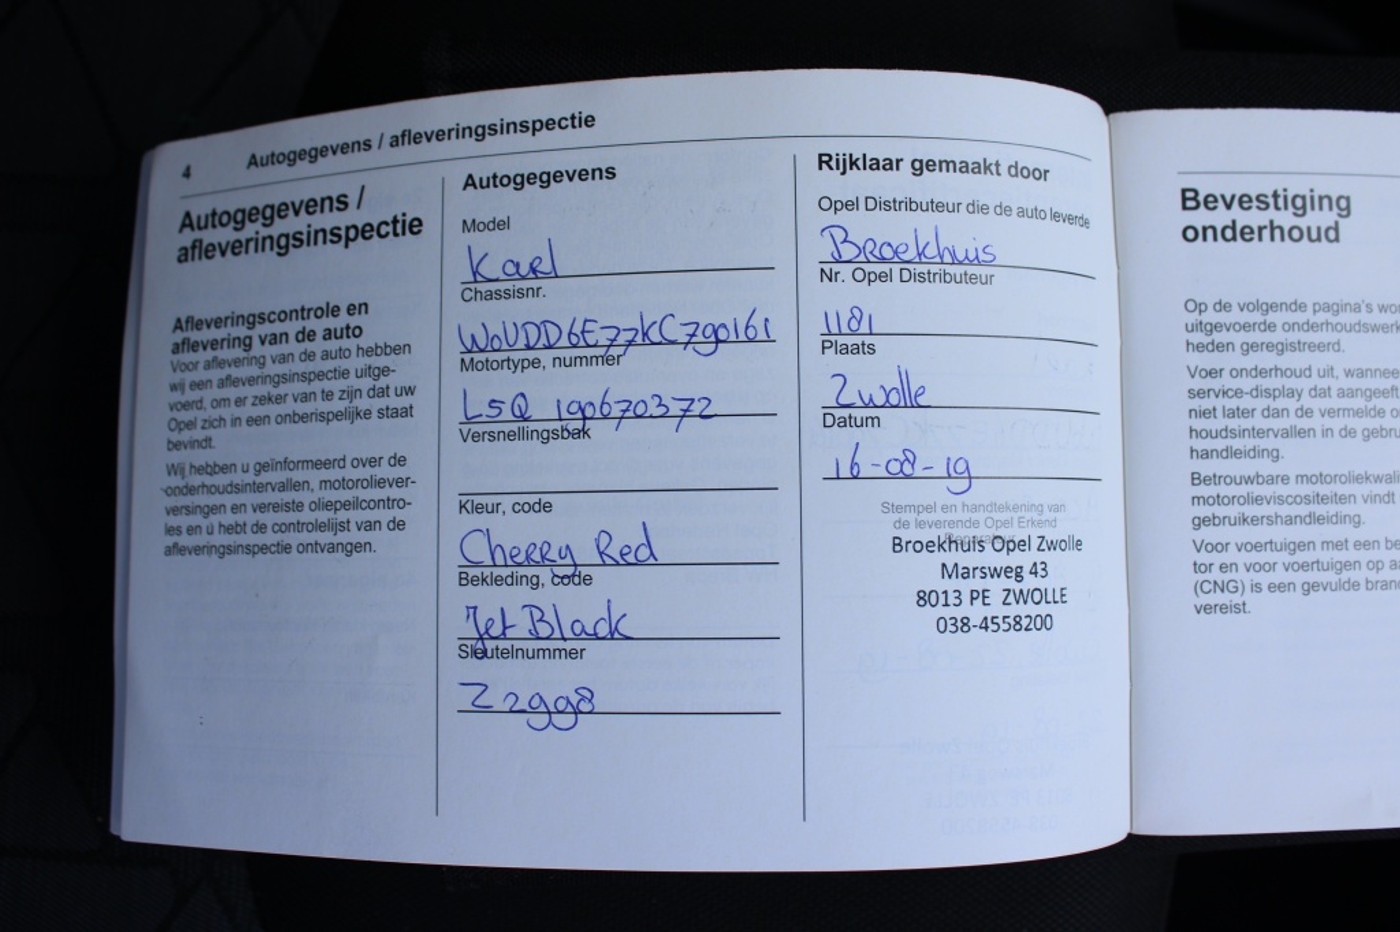 4
Autogegevens / afleveringsinspectie
Autogegevens /
afleveringsinspectie
Afleveringscontrole en
aflevering van de auto
Voor aflevering van de auto hebben
wij een afleveringsinspectie uitge-
voerd, om er zeker van te zijn dat uw
Opel zich in een onberispelijke staat
bevindt.
Wij hebben u geïnformeerd over de
onderhoudsintervallen, motoroliever-
versingen en vereiste oliepeilcontro-
les en u hebt de controlelijst van de
afleveringsinspectie ontvangen.
Autogegevens
Model
Karl
Chassisnr.
W0UDD6E77KC790161
Motortype, nummer
L5Q 190670372
Versnellingsbak
Kleur, code
Cherry Red
Bekleding, code
Jet Black
Sleutelnummer
Z2998
Rijklaar gemaakt door
Opel Distributeur die de auto leverde
Broekhuis
Nr. Opel Distributeur
1181
Plaats
Zwolle
Datum
16-08-19
Stempel en handtekening van
de leverende Opel Erkend
Broekhuis Opel Zwolle
Marsweg 43
8013 PE ZWOLLE
038-4558200
Bevestiging
onderhoud
Op de volgende pagina's wo
uitgevoerde onderhoudswerk
heden geregistreerd.
Voer onderhoud uit, wannee
service-display dat aangeeft
niet later dan de vermelde o
houdsintervallen in de gebru
handleiding.
Betrouwbare motoroliekwali
motorolieviscositeiten vindt
gebruikershandleiding.
Voor voertuigen met een be
tor en voor voertuigen op a
(CNG) is een gevulde bran
vereist.